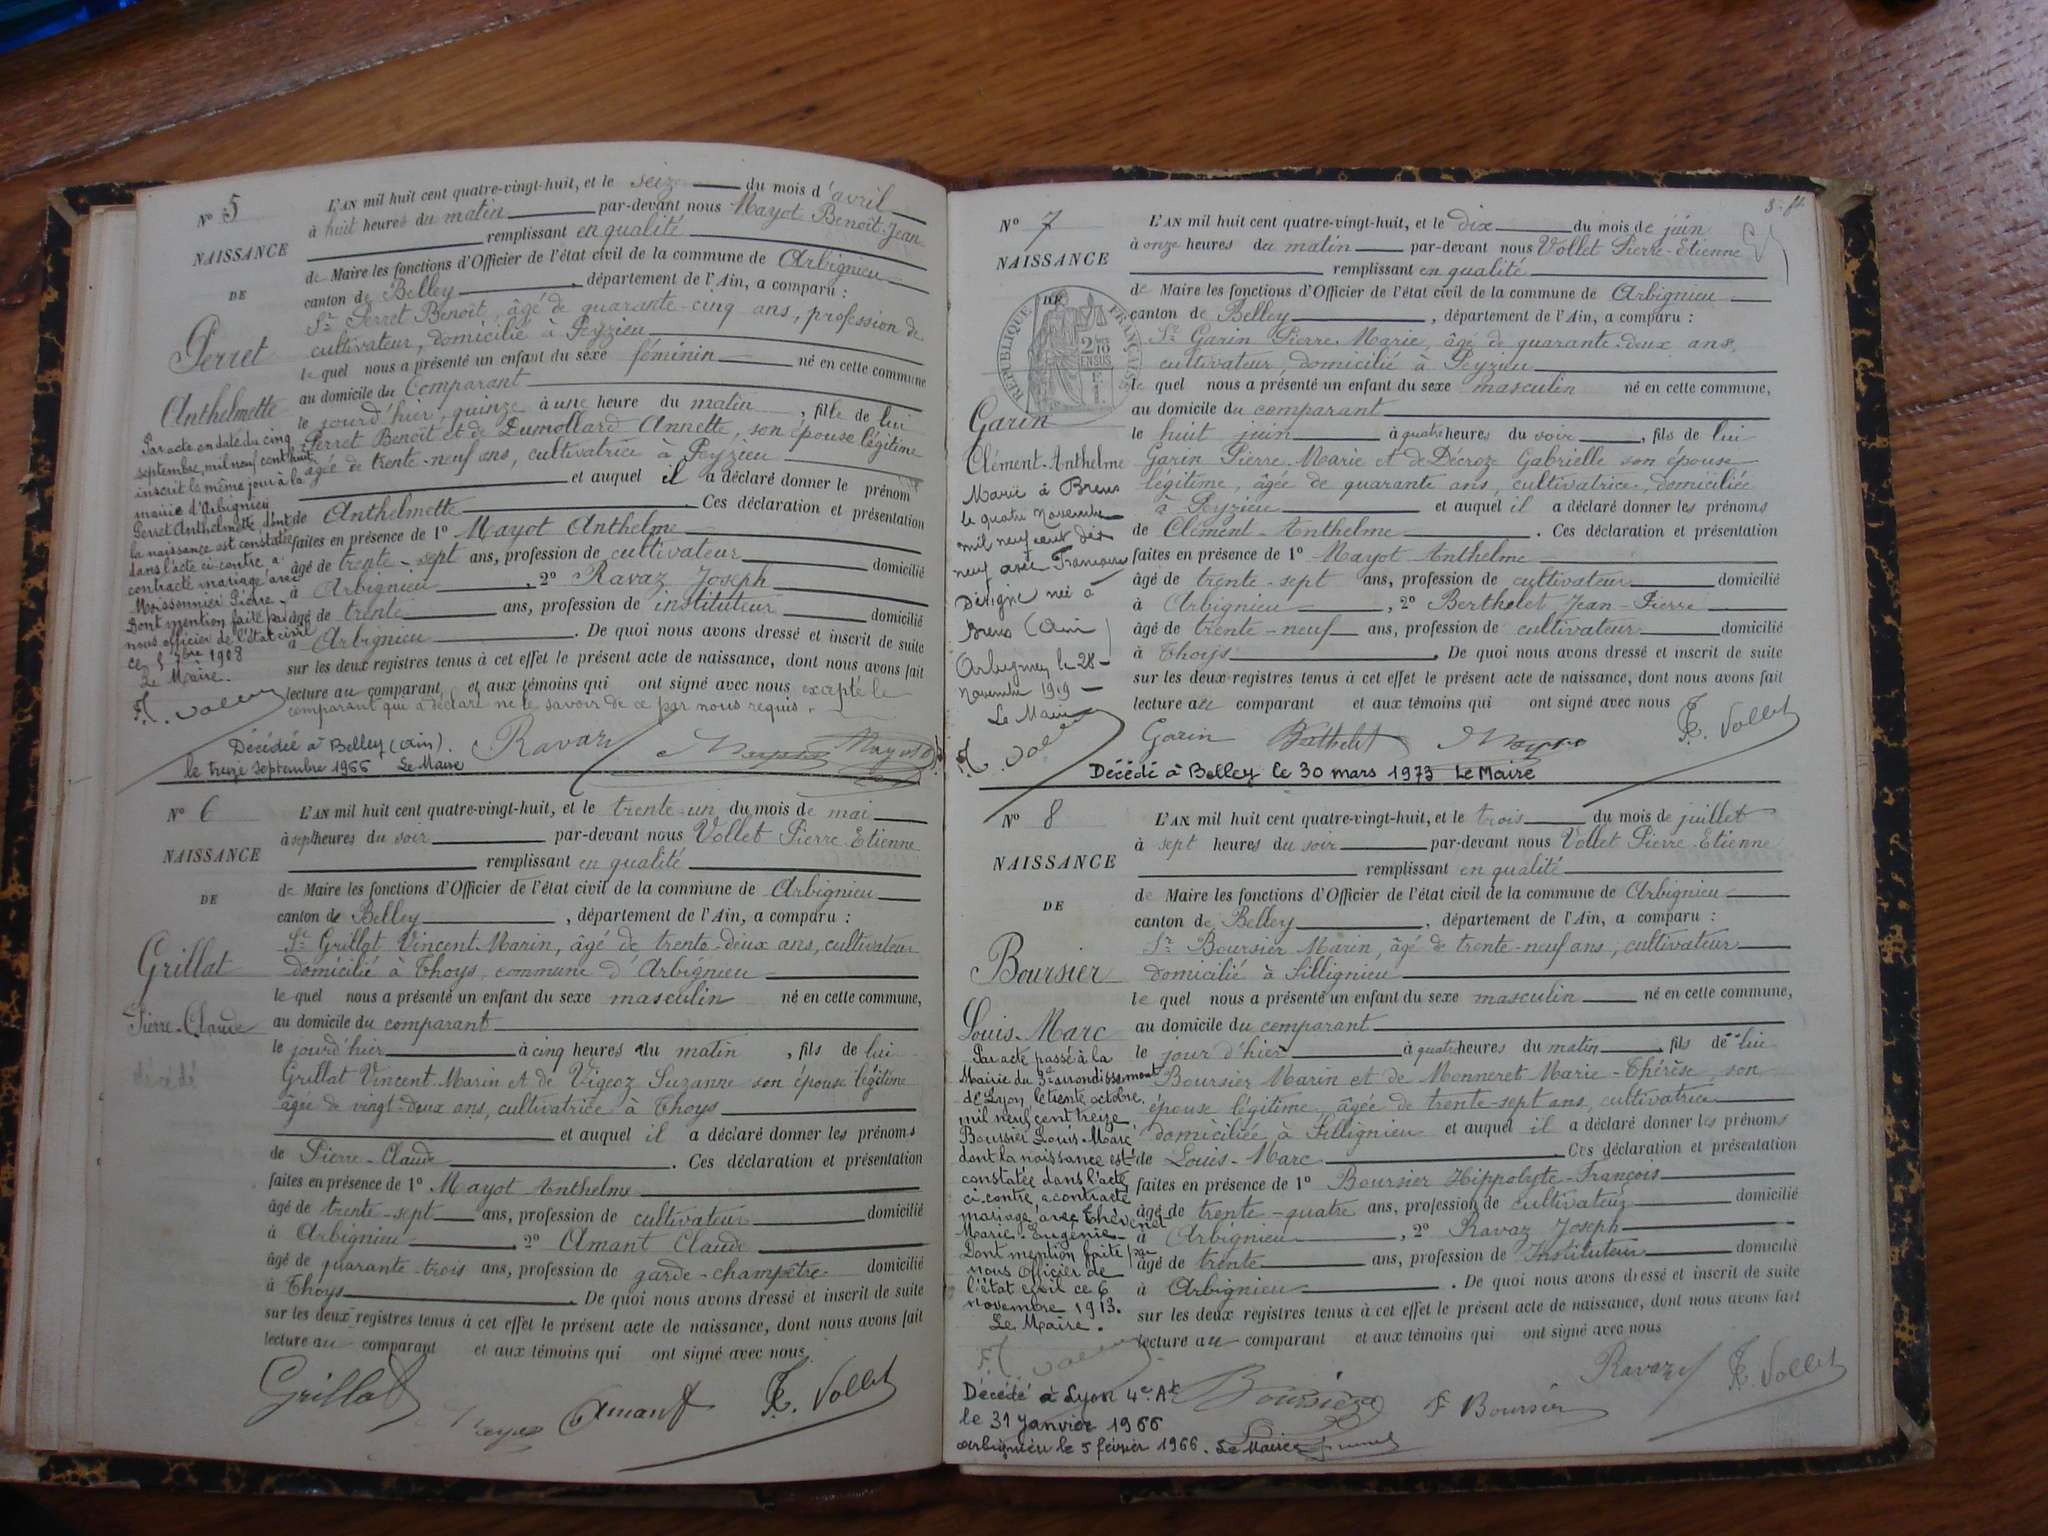 Nº 5
NAISSANCE
DE
Perret
Anthelmette
Par acte en date du cinq
septembre, mil neuf cent huit
inscrit le même jour à la
mairie d'Arbignieu
Perret Anthelmette dont
la naissance est constatée
dans l'acte ci-contre a
contracté mariage avec
Moissonnier Pierre
Dont mention faite par
nous officier de l'état civil
ce 5 7bre 1908
Le Maire.
L'AN mil huit cent quatre-vingt-huit, et le seize du mois d'avril
à huit heures du matin par-devant nous Mayot Benoît-Jean
remplissant en qualité
de Maire les fonctions d'Officier de l'état civil de la commune de Arbignieu
canton de Belley, département de l'Ain, a comparu :
Sr Perret Benoît, âgé de quarante-cinq ans, profession de
cultivateur, domicilié à Peyzieu
le quel nous a présenté un enfant du sexe féminin né en cette commune
au domicile du Comparant
le jourd'hier, quinze à une heure du matin, fille de lui
Perret Benoît et de Dumollard Annette, son épouse légitime
âgée de trente-neuf ans, cultivatrice à Peyzieu
et auquel il a déclaré donner le prénom
de Anthelmette. Ces déclaration et présentation
faites en présence de 1º Mayot Anthelme
âgé de trente-sept ans, profession de cultivateur domicilié
à Arbignieu, 2º Ravaz Joseph
âgé de trente ans, profession de instituteur domicilié
à Arbignieu. De quoi nous avons dressé et inscrit de suite
sur les deux registres tenus à cet effet le présent acte de naissance, dont nous avons fait
lecture au comparant et aux témoins qui ont signé avec nous excepté le
comparant qui a déclaré ne le savoir de ce par nous requis.
Ravaz
Décédée à Belley (Ain).
le treize septembre 1966 Le Maire
Nº 6
NAISSANCE
DE
Grillat
Pierre-Claude
décédé
L'AN mil huit cent quatre-vingt-huit, et le trente-un du mois de mai
à sept heures du soir par-devant nous Vollet Pierre Etienne
remplissant en qualité
de Maire les fonctions d'Officier de l'état civil de la commune de Arbignieu
canton de Belley, département de l'Ain, a comparu :
Sr Grillat Vincent Marin, âgé de trente-deux ans, cultivateur
domicilié à Thoys, commune d'Arbignieu
le quel nous a présenté un enfant du sexe masculin né en cette commune,
au domicile du comparant
le jourd'hier à cinq heures du matin, fils de lui
Grillat Vincent Marin et de Vigeoz Suzanne son épouse légitime
âgée de vingt-deux ans, cultivatrice à Thoys
et auquel il a déclaré donner les prénoms
de Pierre-Claude. Ces déclaration et présentation
faites en présence de 1º Mayot Anthelme
âgé de trente-sept ans, profession de cultivateur domicilié
à Arbignieu 2º Amant Claude
âgé de quarante-trois ans, profession de garde-champêtre domicilié
à Thoys. De quoi nous avons dressé et inscrit de suite
sur les deux registres tenus à cet effet le présent acte de naissance, dont nous avons fait
lecture au comparant et aux témoins qui ont signé avec nous.
Grillat Amant Vollet
Nº 7
NAISSANCE
DE
RÉPUBLIQUE FRANÇAISE
Garin
Clément-Anthelme
Marié à Brens
le quatre Novembre
mil neuf cent dix
neuf avec
née à
Brens (Ain)
le 28
Novembre 1919
Le Maire
L'AN mil huit cent quatre-vingt-huit, et le dix du mois de juin
à onze heures du matin par-devant nous Vollet Pierre-Etienne
remplissant en qualité
de Maire les fonctions d'Officier de l'état civil de la commune de Arbignieu
canton de Belley, département de l'Ain, a comparu :
Sr Garin Pierre-Marie, âgé de quarante-deux ans,
cultivateur, domicilié à Peyzieu
le quel nous a présenté un enfant du sexe masculin né en cette commune,
au domicile du comparant
le huit juin à quatre heures du soir, fils de lui
Garin Pierre-Marie et de Décroze Gabrielle son épouse
légitime, âgée de quarante ans, cultivatrice, domiciliée
à Peyzieu et auquel il a déclaré donner les prénoms
de Clément-Anthelme. Ces déclaration et présentation
faites en présence de 1º Mayot Anthelme
âgé de trente-sept ans, profession de cultivateur domicilié
à Arbignieu, 2º Berthelet Jean-Pierre
âgé de trente-neuf ans, profession de cultivateur domicilié
à Thoys. De quoi nous avons dressé et inscrit de suite
sur les deux registres tenus à cet effet le présent acte de naissance, dont nous avons fait
lecture au comparant et aux témoins qui ont signé avec nous
Garin Berthelet Vollet
Décédé à Belley le 30 mars 1973 Le Maire
Nº 8
NAISSANCE
DE
Boursier
Louis-Marc
Par acte passé à la
Mairie du 3e arrondissement
de Lyon le trente octobre,
mil neuf cent treize
Boursier Louis-Marc
dont la naissance est
constatée dans l'acte
ci-contre a contracté
mariage avec Thévenet
Marie-Eugénie
Dont mention faite par
nous Officier de
l'état civil ce 6
novembre 1913.
Le Maire.
L'AN mil huit cent quatre-vingt-huit, et le trois du mois de juillet
à sept heures du soir par-devant nous Vollet Pierre-Etienne
remplissant en qualité
de Maire les fonctions d'Officier de l'état civil de la commune de Arbignieu
canton de Belley, département de l'Ain, a comparu :
Sr Boursier Marin, âgé de trente-neuf ans, cultivateur
domicilié à Sillignieu
le quel nous a présenté un enfant du sexe masculin né en cette commune,
au domicile du comparant
le jour d'hier à quatre heures du matin, fils de lui
Boursier Marin et de Monneret Marie-Thérèse, son
épouse légitime, âgée de trente-sept ans, cultivatrice
domiciliée à Sillignieu et auquel il a déclaré donner les prénoms
de Louis-Marc. Ces déclaration et présentation
faites en présence de 1º Boursier Hippolyte-François
âgé de trente-quatre ans, profession de cultivateur domicilié
à Arbignieu, 2º Ravaz Joseph
âgé de trente ans, profession de Instituteur domicilié
à Arbignieu. De quoi nous avons dressé et inscrit de suite
sur les deux registres tenus à cet effet le présent acte de naissance, dont nous avons fait
lecture au comparant et aux témoins qui ont signé avec nous
Boursier F Boursier Ravaz Vollet
Décédé à Lyon 4e At
le 31 janvier 1966
Arbignieu le 5 février 1966. Le Maire